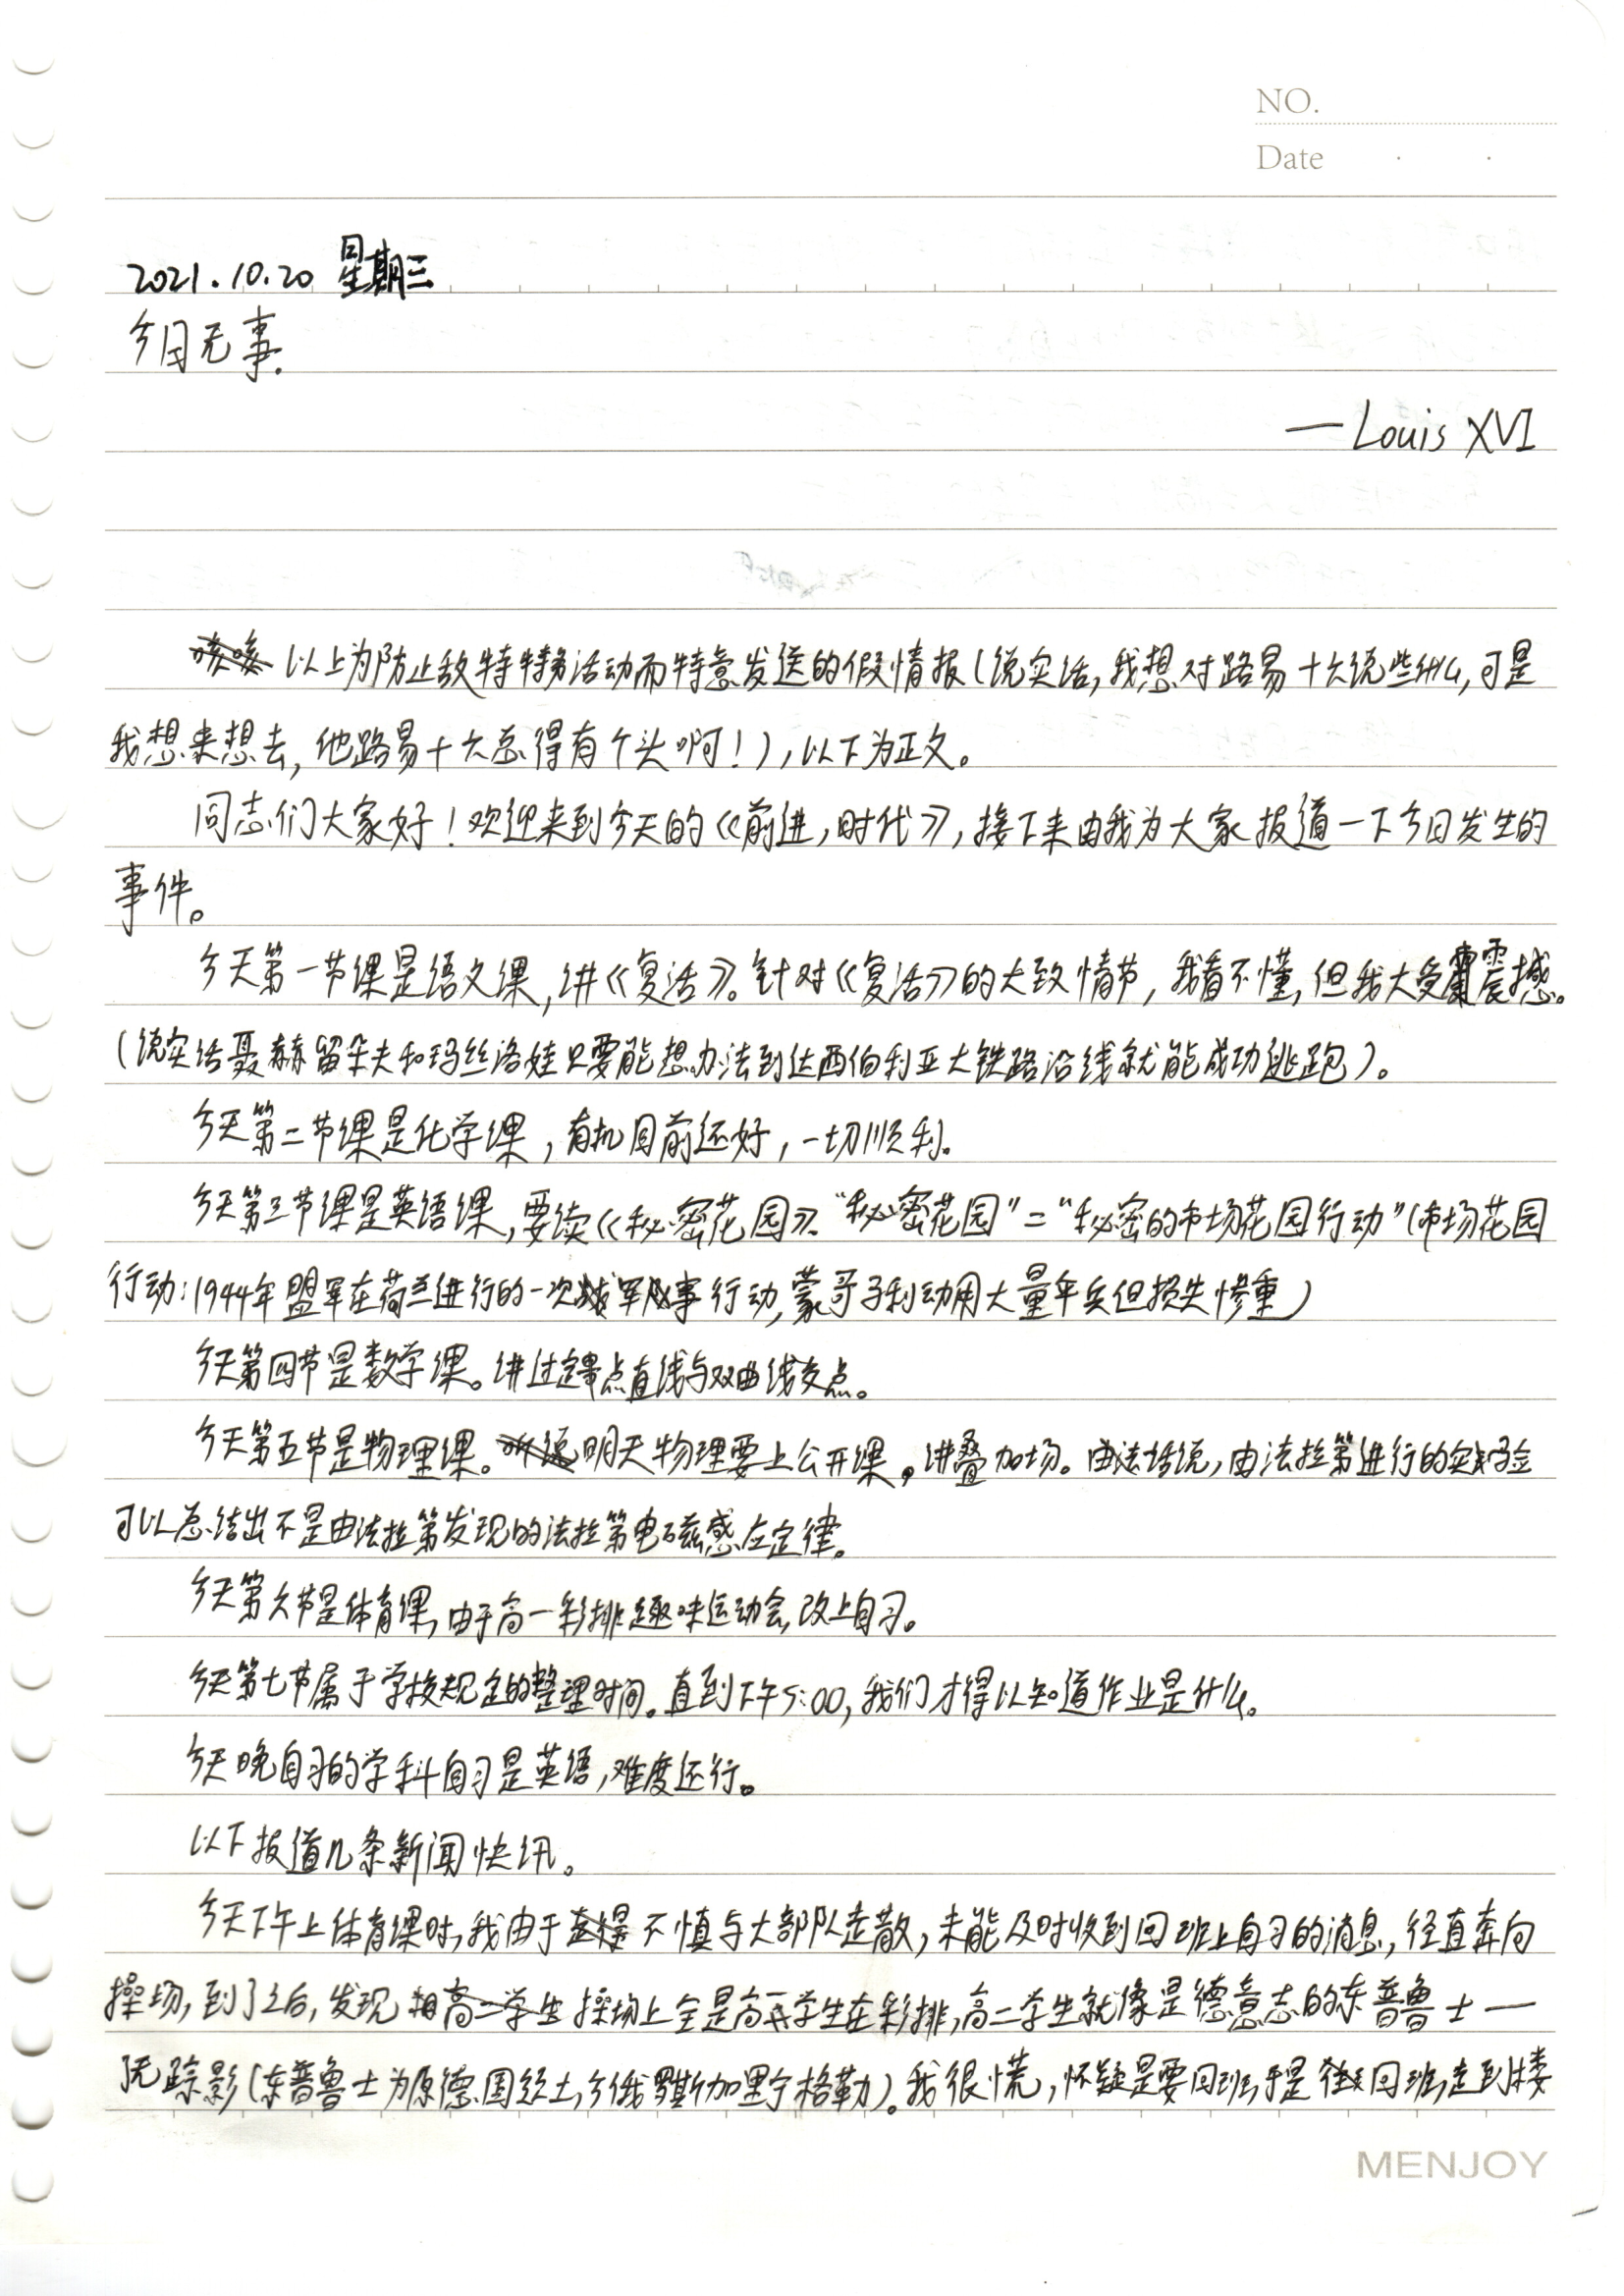 NO.
Date
2021.10.20 星期三
今日无事.
—Louis XVI
以上为防止敌特特务活动而特意发送的假情报(说实话,我想对路易十六说些什么,可是
我想来想去,他路易十六总得有个头啊!),以下为正文。
同志们大家好!欢迎来到今天的《前进,时代》,接下来由我为大家报道一下今日发生的
事件。
今天第一节课是语文课,讲《复活》。针对《复活》的大致情节,我看不懂,但我大受震撼。
(说实话聂赫留朵夫和玛丝洛娃只要能想办法到达西伯利亚大铁路沿线就能成功逃跑)。
今天第二节课是化学课,有机目前还好,一切顺利.
今天第三节课是英语课,要读《秘密花园》.“秘密花园”=“秘密的市场花园行动”(市场花园
行动:1944年盟军在荷兰进行的一次军事行动,蒙哥马利动用大量伞兵但损失惨重)
今天第四节是数学课。讲过定点直线与双曲线交点。
今天第五节是物理课。明天物理要上公开课,讲叠加场。由法话说,由法拉第进行的实验
可以总结出不是由法拉第发现的法拉第电磁感应定律。
今天第六节是体育课,由于高一彩排趣味运动会,改上自习。
今天第七节属于学校规定的整理时间。直到下午5:00,我们才得以知道作业是什么。
今天晚自习的学科自习是英语,难度还行。
以下报道几条新闻快讯。
今天下午上体育课时,我由于不慎与大部队走散,未能及时收到回班上自习的消息,径直奔向
操场,到了之后,发现操场上全是高一学生在彩排,高二学生就像是德意志的东普鲁士—
无踪影(东普鲁士为原德国领土,今俄罗斯加里宁格勒)。我很慌,怀疑是要回班,于是往回班,走到楼
MENJOY